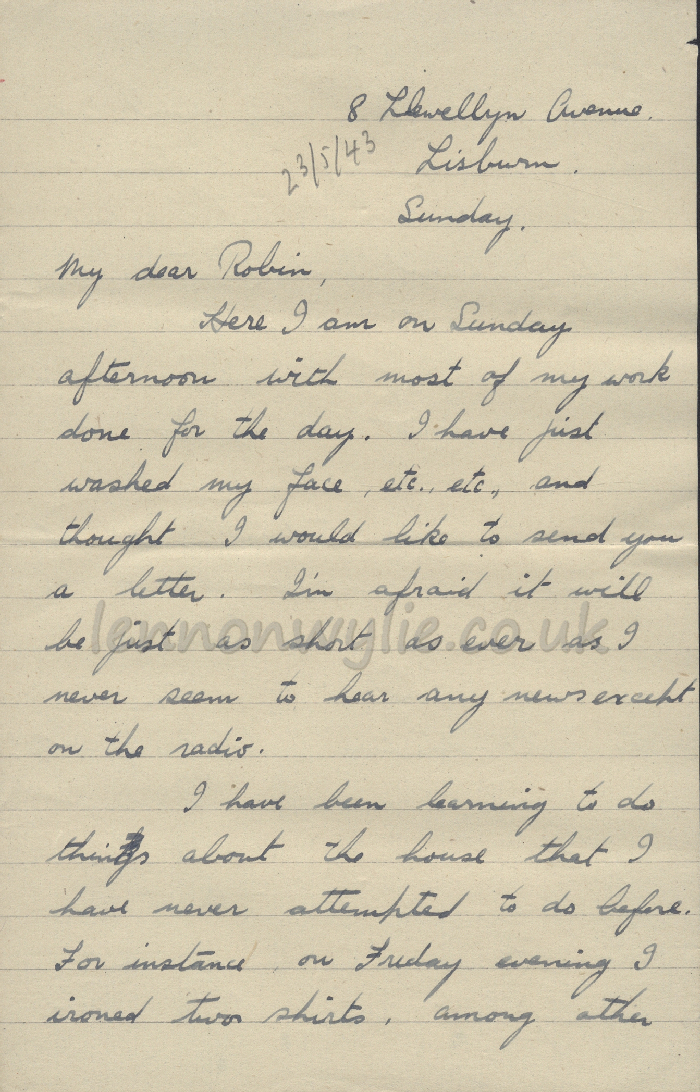 8 Llewellyn Avenue.
23/5/43 Lisburn.
Sunday.
My dear Robin,
Here I am on Sunday
afternoon with most of my work
done for the day. I have just
washed my face, etc., etc., and
thought I would like to send you
a letter. I'm afraid it will
lennonwylie.co.uk
be just as short as ever as I
never seem to hear any news except
on the radio.
I have been learning to do
things about the house that I
have never attempted to do before.
For instance on Friday evening I
ironed two shirts, among other